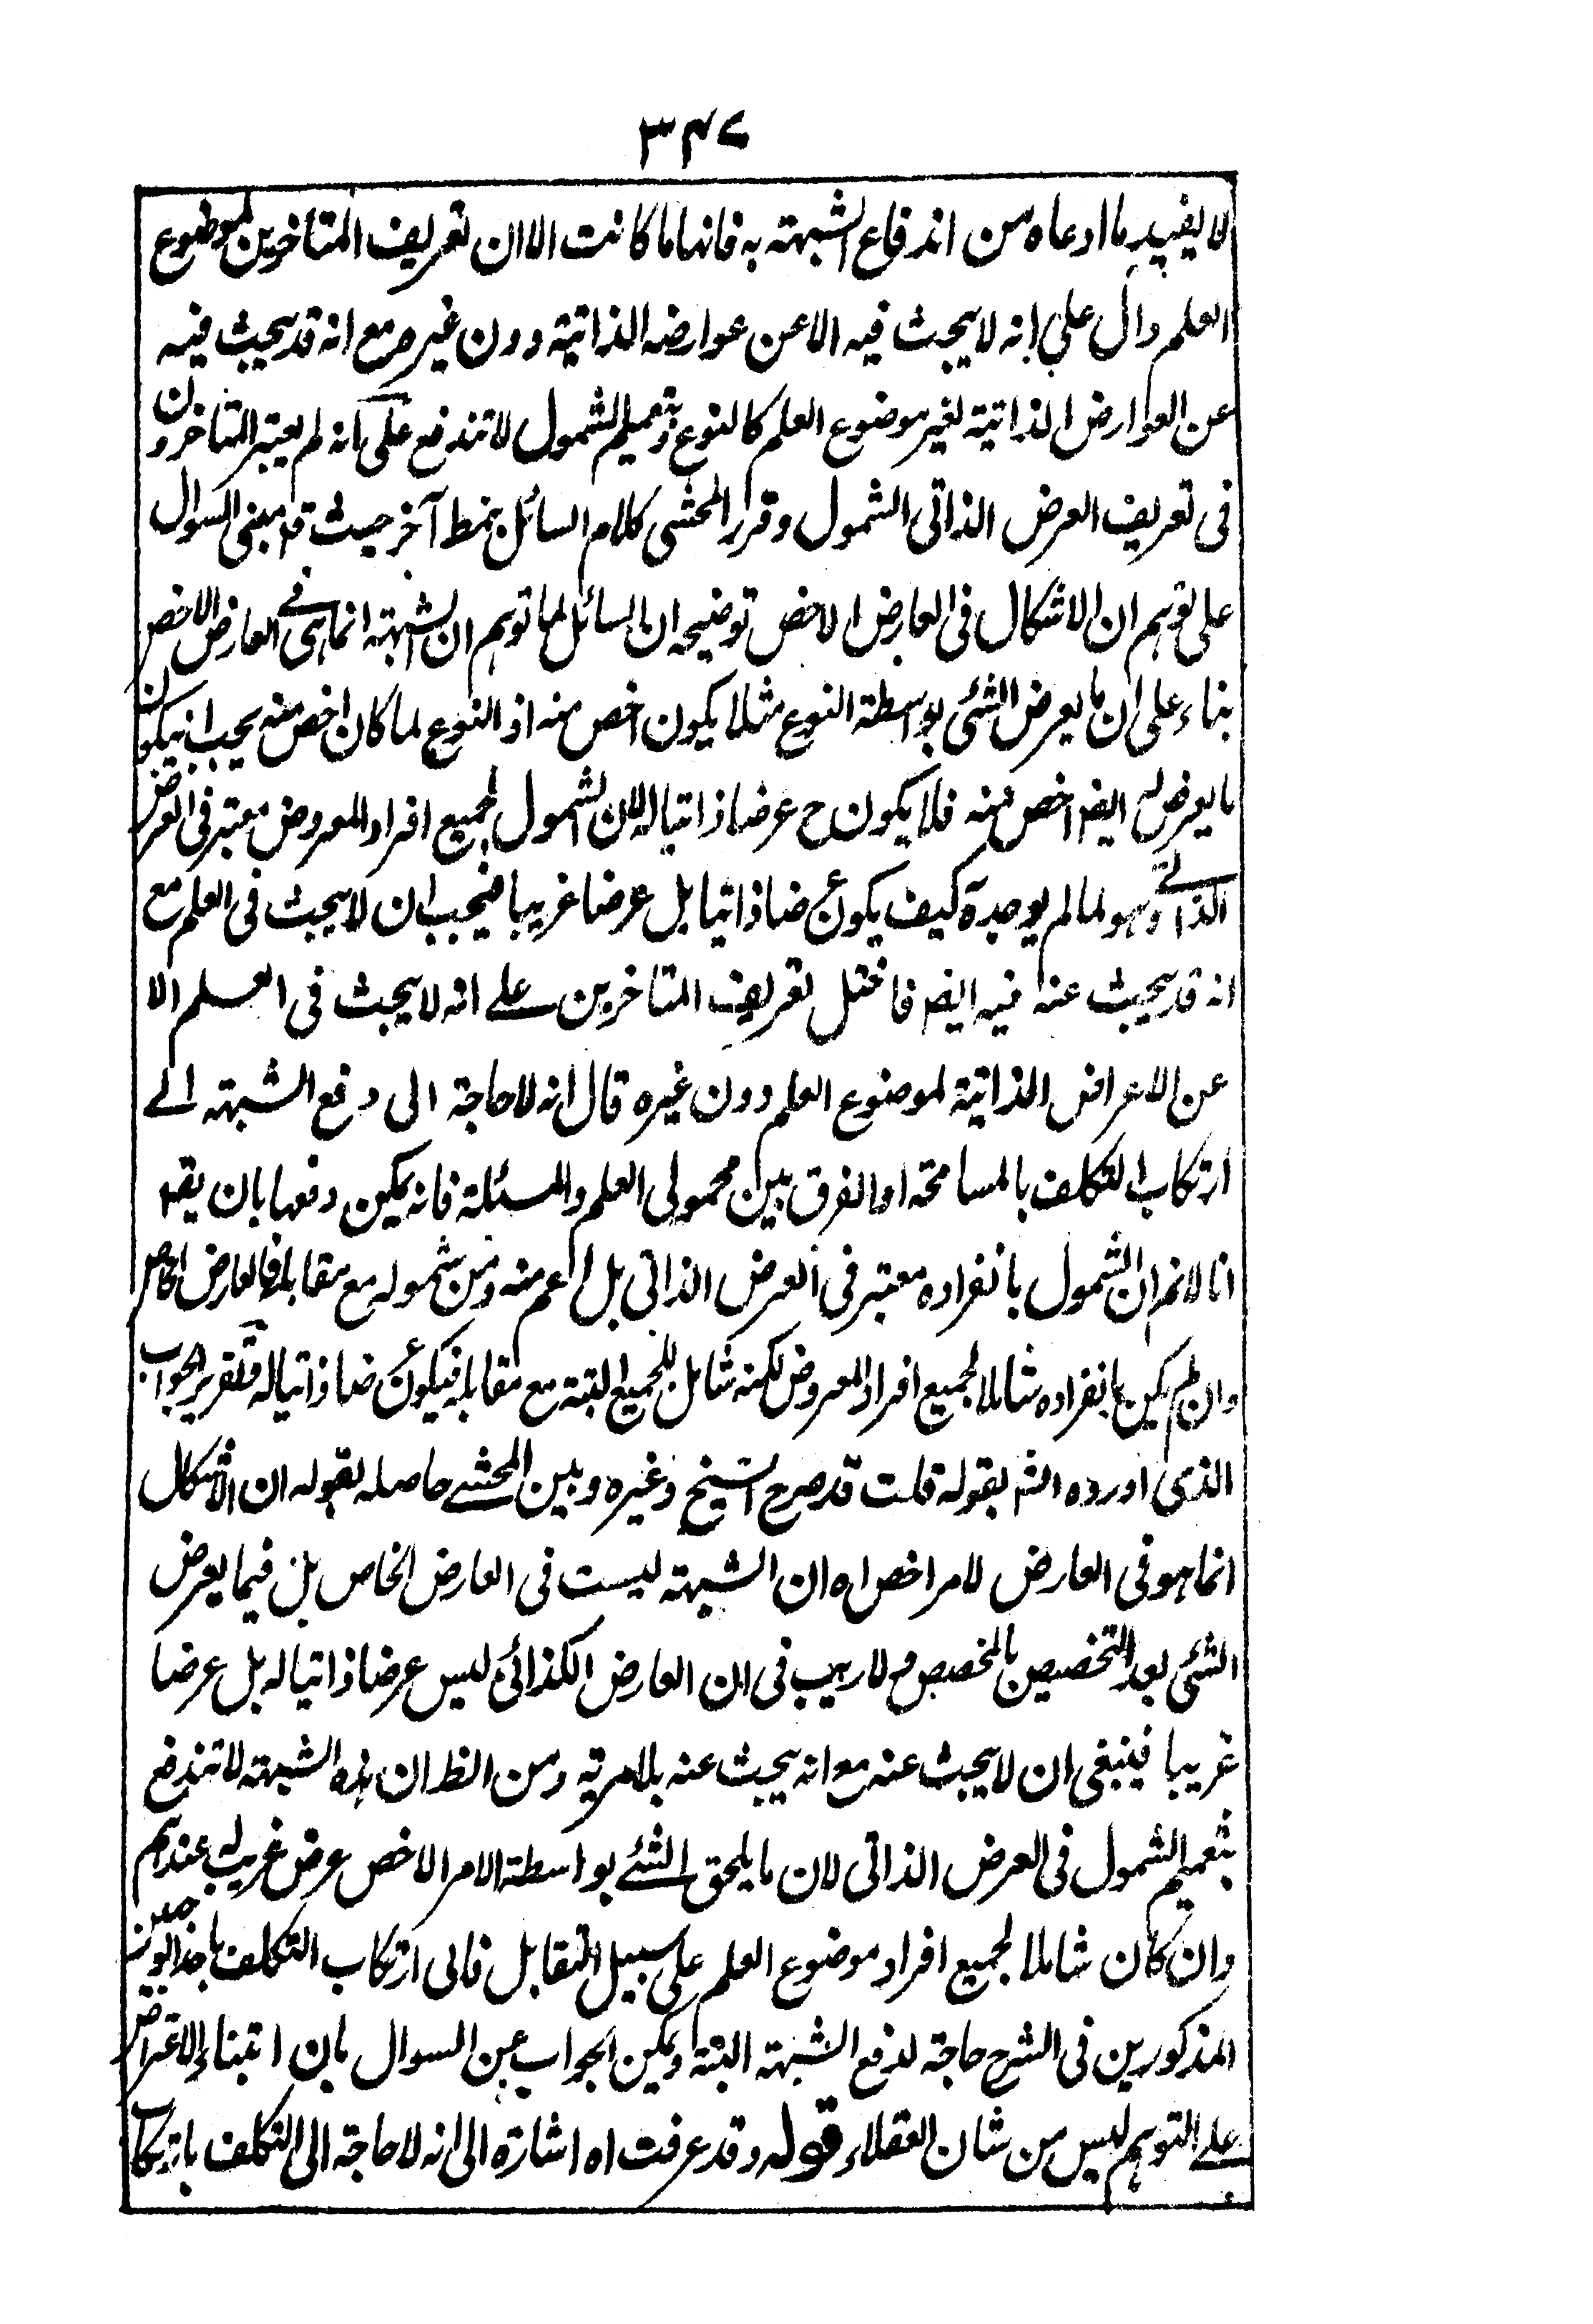 ٣٤٧
لا يفيد ما ادعاه من اندفاع الشبهة به فانها ما كانت الا ان تعريف المتاخرين لموضوع
العلم دال على انه لا يبحث فيه الا عن عوارضه الذاتية دون غيره مع انه قد يبحث فيه
عن العوارض الذاتية لغير موضوع العلم كالنوع وبتعميم الشمول لا تندفع على انه لم يعتبر المتاخرون
فى تعريف العرض الذاتى الشمول وقرر المحشى كلام السائل بنمط آخر حيث قم مبنى السوال
على توهم ان الاشكال فى العارض الاخص توضيحه ان السائل لما توهم ان الشبهة انما هى فى العارض الاخص
بناء على ان ما يعرض الشئ بواسطة النوع مثلا يكون اخص منه اذ النوع لما كان اخص منه يجب ان يكون
ما يعرض له ايضا اخص منه فلا يكون ح عرضا ذاتيا له لان الشمول لجميع افراد المعروض معتبر فى العرض
الذاتى وهو لما لم يوجد ثمة كيف يكون عرضا ذاتيا بل عرضا غريبا فيجب ان لا يبحث فى العلم مع
انه قد يبحث عنه فيه ايضا فاختل تعريف المتاخرين على انه لا يبحث فى العلم الا
عن الاعراض الذاتية لموضوع العلم دون غيره قال انه لا حاجة الى دفع الشبهة الى
ارتكاب التكلف بالمسامحة او الفرق بين محمولى العلم والمسئلة فانه يمكن دفعها بان يقم
انا لا نم ان الشمول بانفراده معتبر فى العرض الذاتى بل اعم منه ومن شموله مع مقابله فالعارض الخاص
وان لم يكن بانفراده شاملا لجميع افراد المعروض لكنه شامل للجميع البتة مع مقابله فيكون عرضا ذاتيا له وتقرير الجواب
الذى اورده الشم بقوله قلت قد صرح الشيخ وغيره وبين المحشى حاصله بقوله ان الاشكال
انما هو فى العارض لامر اخص اه ان الشبهة ليست فى العارض الخاص بل فيما يعرض
الشئ بعد التخصيص بالمخصص ولا ريب فى ان العارض الكذائى ليس عرضا ذاتيا له بل عرضا
غريبا فينبغى ان لا يبحث عنه مع انه يبحث عنه بلا مرية ومن الظ ان هذه الشبهة لا تندفع
بتعميم الشمول فى العرض الذاتى لان ما يلحق الشئ بواسطة الامر الاخص عرض غريب له عندهم
وان كان شاملا لجميع افراد موضوع العلم على سبيل التقابل فالى ارتكاب التكلف باحد الوجهين
المذكورين فى الشرح حاجة لدفع الشبهة البتة ويمكن الجواب عن السوال بان ابتناء الاعتراض
على التوهم ليس من شان العقلاء قوله وقد عرفت اه اشارة الى انه لا حاجة الى التكلف بارتكاب